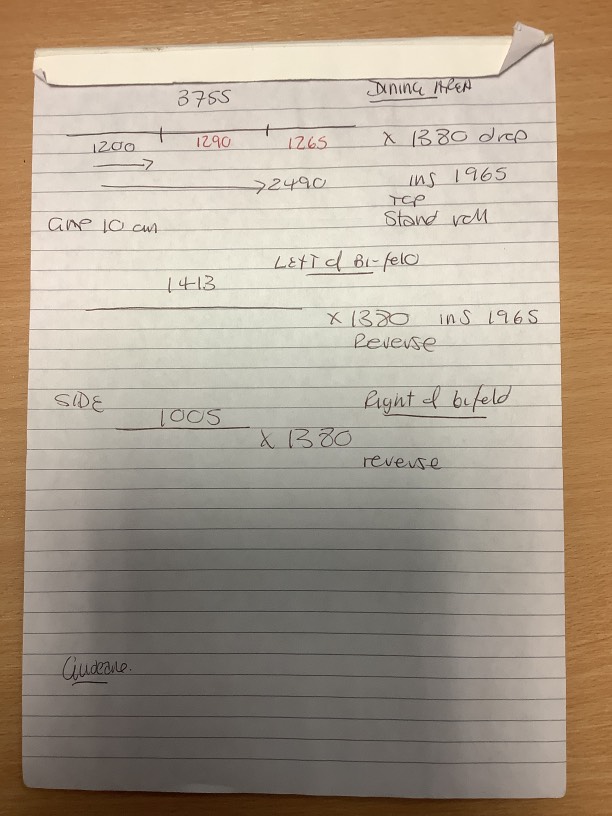 3755 Dining Area
1200 1290 1265 x 1380 drop
2490 ins 1965
TCP
Stand roll
10 cm
Left of Bi-fold
1413
x 1380 ins 1965
Reverse
SIDE Right of bifold
1005
x 1380
reverse